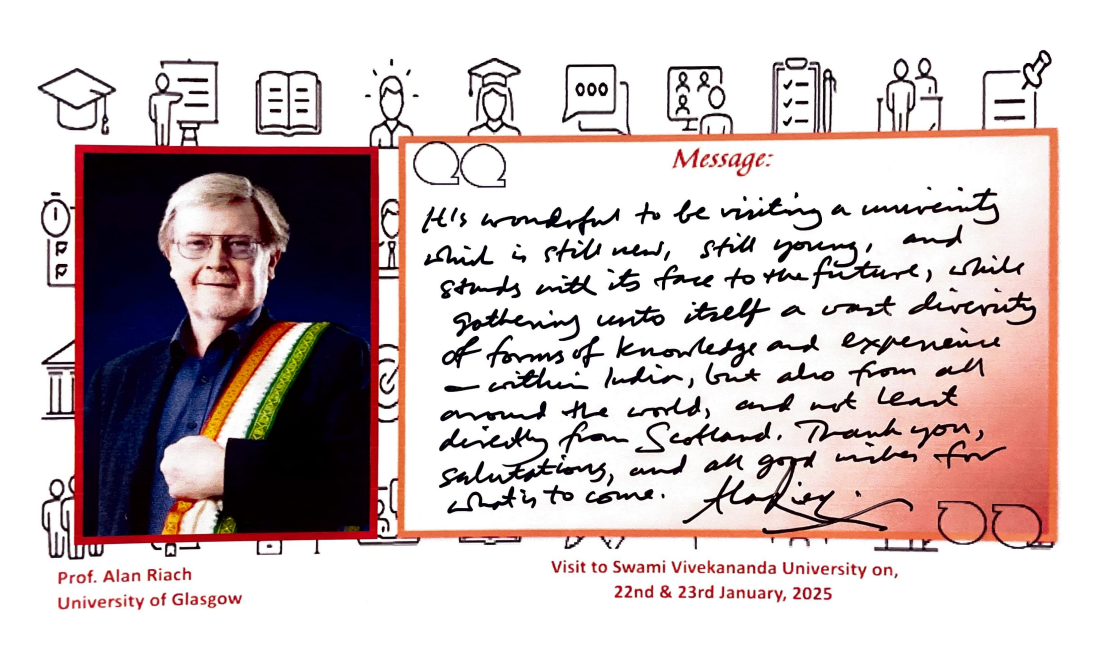 Message:
It's wonderful to be visiting a university
which is still new, still young, and
stands with its face to the future, while
gathering unto itself a vast diversity
of forms of knowledge and experience
– within India, but also from all
around the world, and not least
directly from Scotland. Thank you,
salutations, and all good wishes for
what is to come. Alan Riach.
Prof. Alan Riach
University of Glasgow
Visit to Swami Vivekananda University on,
22nd & 23rd January, 2025